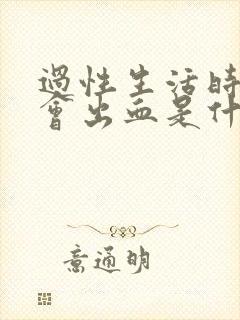 過性生活時
會出血是什
意通明